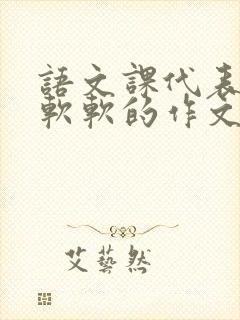 語文課代表
軟軟的作文
艾藝然